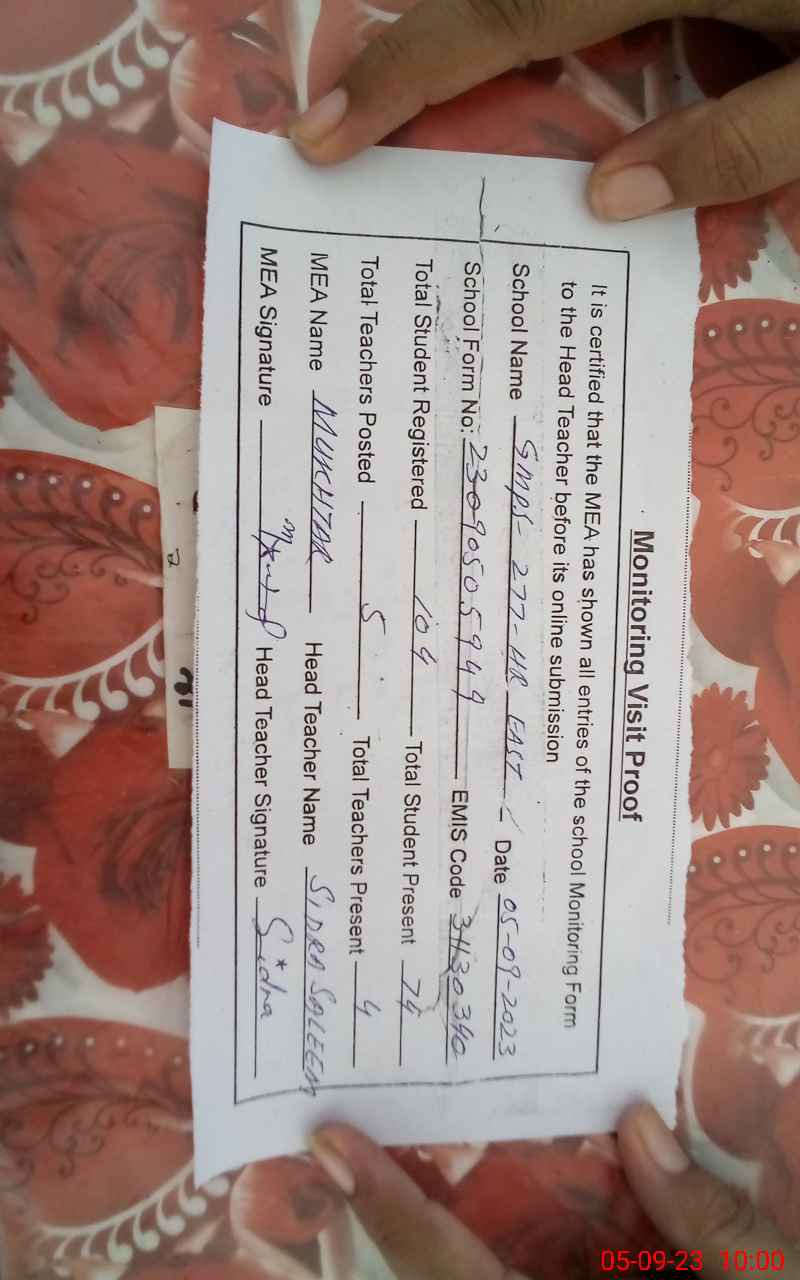 Monitoring Visit Proof
It is certified that the MEA has shown all entries of the school Monitoring Form
to the Head Teacher before its online submission
School Name GMPS-277-HR EAST Date 05-09-2023
School Form No: 23090505949 EMIS Code 31130340
Total Student Registered 104 Total Student Present 74
Total Teachers Posted 5 Total Teachers Present 4
MEA Name MUKHTAR Head Teacher Name SIDRA SALEEM
MEA Signature Head Teacher Signature Sidra
05-09-23 10:00